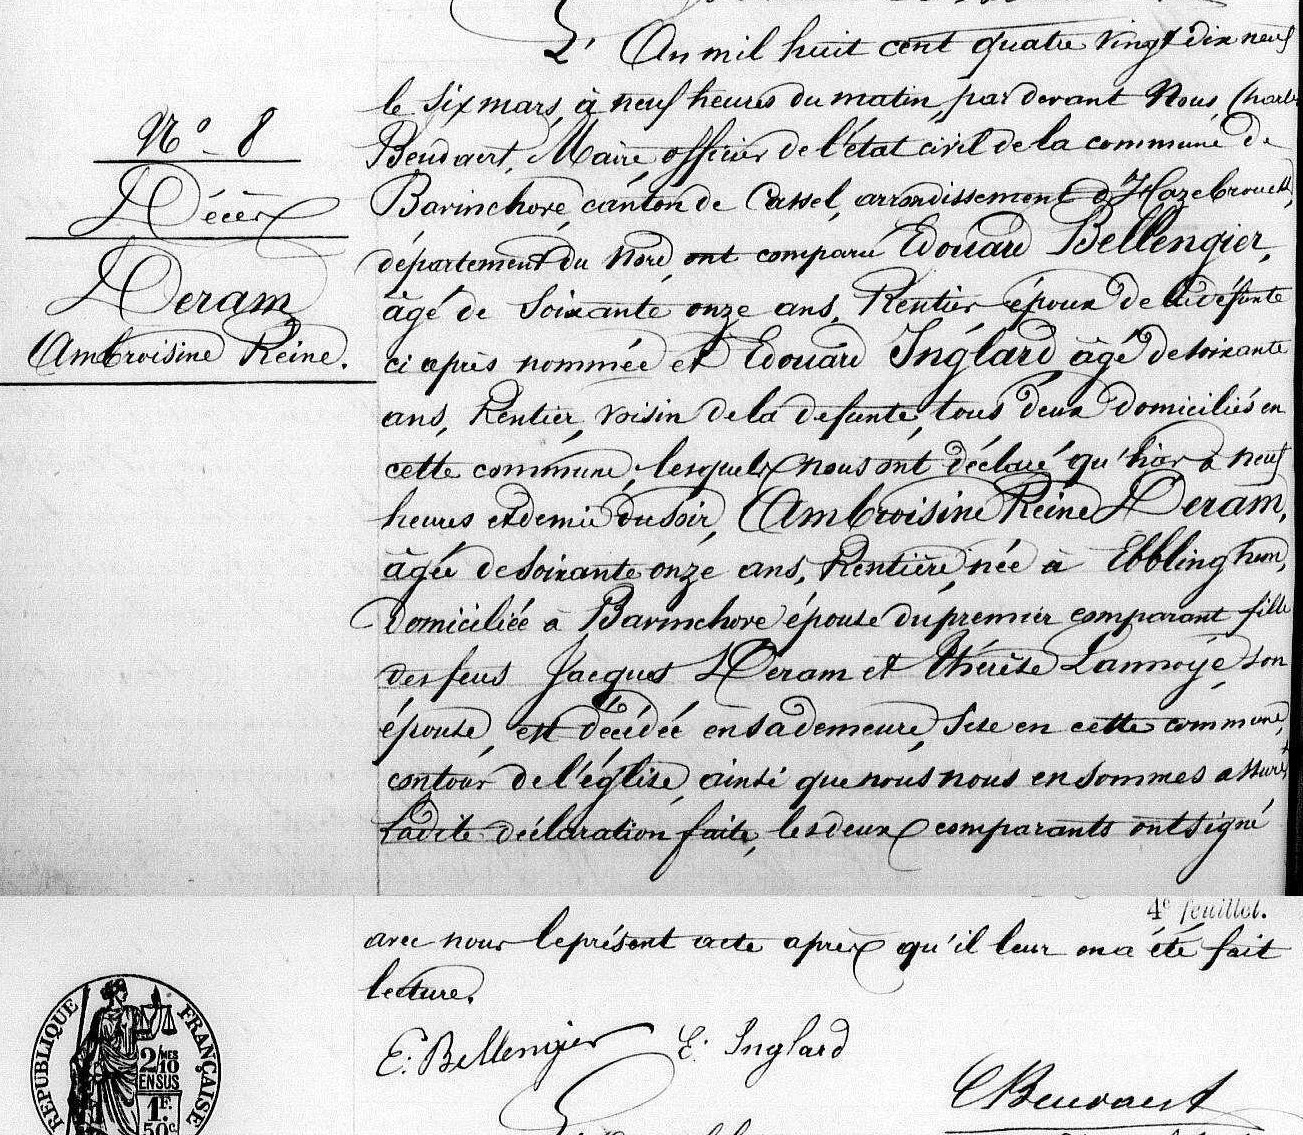 N° 8
Décès
Deram
Ambroisine Reine.
L'An mil huit cent quatre vingt dix neuf
le six mars, à neuf heures du matin, par devant Nous Charles
Beudaert, Maire officier de l'état civil de la commune de
Bavinchove, canton de Cassel, arrondissement d'Hazebrouck,
département du Nord, ont comparu Edouard Bellengier,
âgé de soixante onze ans, Rentier époux de la défunte
ci après nommée et Edouard Inglard âgé de soixante
ans, Rentier, voisin de la defunte, tous deux domiciliés en
cette commune, lesquels nous ont déclaré qu'hier à neuf
heures et demie du soir, Ambroisine Reine Deram,
âgée de soixante onze ans, Rentière, née à Ebblinghem,
domiciliée à Bavinchove épouse du premier comparant fille
des feus Jacques Deram et Thérèse Lannoye, son
épouse, est décédée en sa demeure, sise en cette commune,
contour de l'église, ainsi que nous nous en sommes assuré
Ladite déclaration faite, les deux comparants ont signé
4e feuillet.
avec nous le présent acte après qu'il leur en a été fait
lecture.
E. Bellengier E. Inglard
RÉPUBLIQUE FRANÇAISE
2/10 MES
EN SUS
1F.
50c